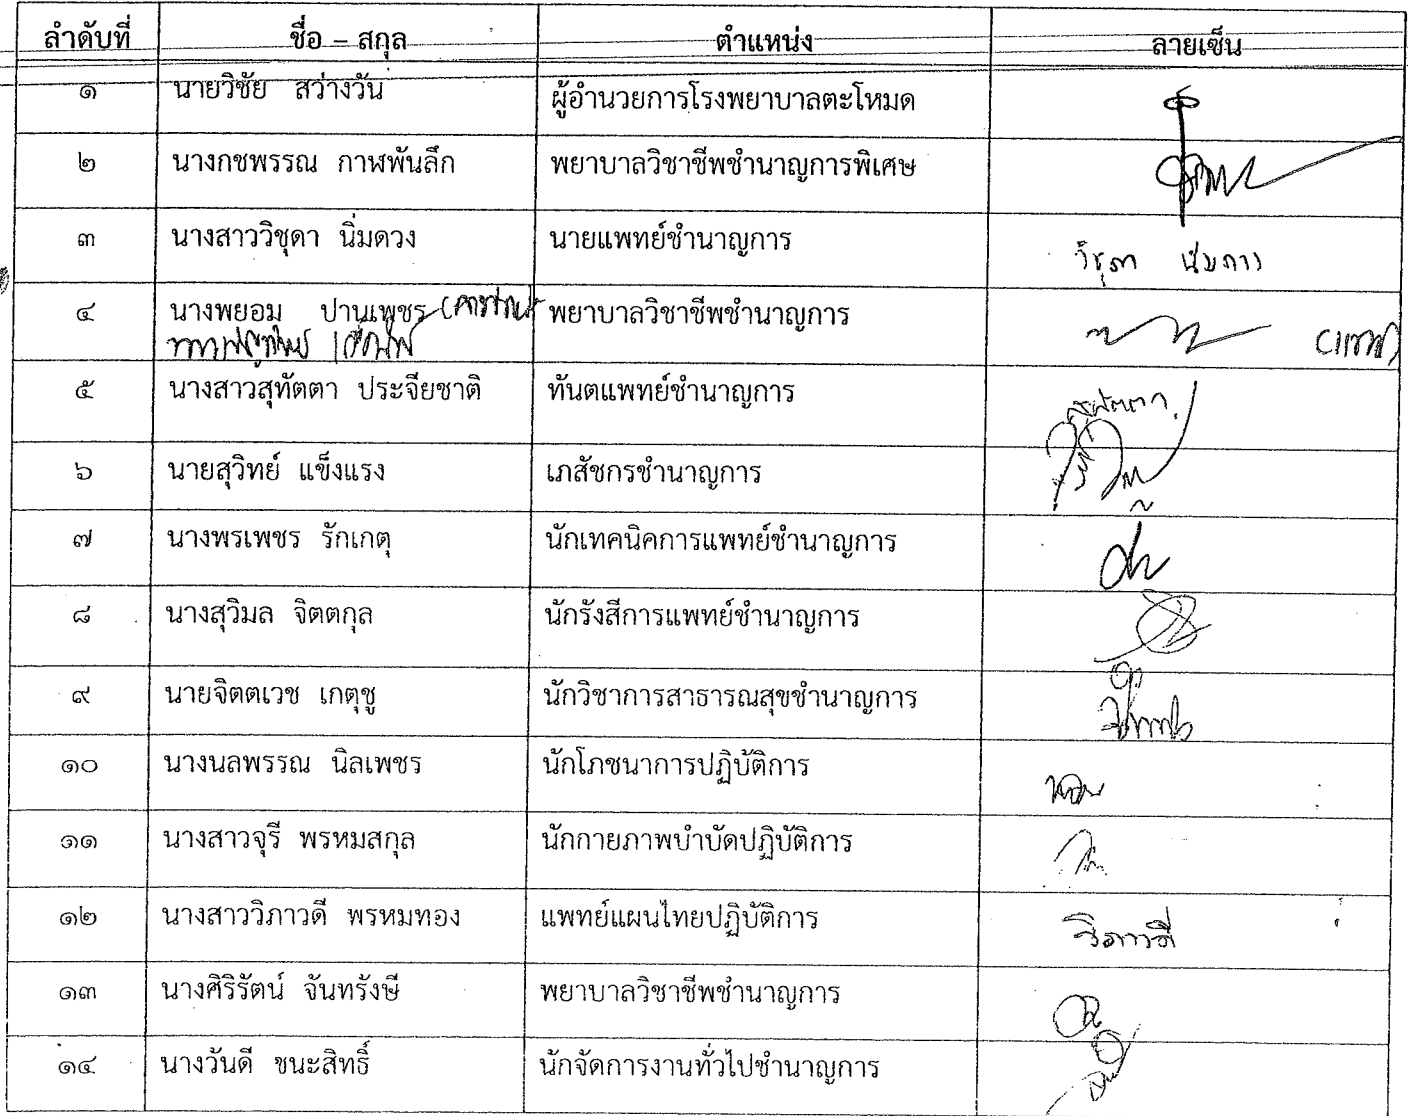 ลำดับที่ ชื่อ – สกุล ตำแหน่ง ลายเซ็น
๑ นายวิชัย สว่างวัน ผู้อำนวยการโรงพยาบาลตะโหมด
๒ นางกชพรรณ กาฬพันลึก พยาบาลวิชาชีพชำนาญการพิเศษ
๓ นางสาววิชุดา นิ่มดวง นายแพทย์ชำนาญการ วิชุดา นิ่มดวง
๔ นางพยอม ปานเพชร พยาบาลวิชาชีพชำนาญการ
๕ นางสาวสุทัตตา ประจียชาติ ทันตแพทย์ชำนาญการ สุทัตตา
๖ นายสุวิทย์ แข็งแรง เภสัชกรชำนาญการ
๗ นางพรเพชร รักเกตุ นักเทคนิคการแพทย์ชำนาญการ
๘ นางสุวิมล จิตตกุล นักรังสีการแพทย์ชำนาญการ
๙ นายจิตตเวช เกตุชู นักวิชาการสาธารณสุขชำนาญการ
๑๐ นางนลพรรณ นิลเพชร นักโภชนาการปฏิบัติการ
๑๑ นางสาวจุรี พรหมสกุล นักกายภาพบำบัดปฏิบัติการ
๑๒ นางสาววิภาวดี พรหมทอง แพทย์แผนไทยปฏิบัติการ วิภาวดี
๑๓ นางศิริรัตน์ จันทรังษี พยาบาลวิชาชีพชำนาญการ
๑๔ นางวันดี ชนะสิทธิ์ นักจัดการงานทั่วไปชำนาญการ